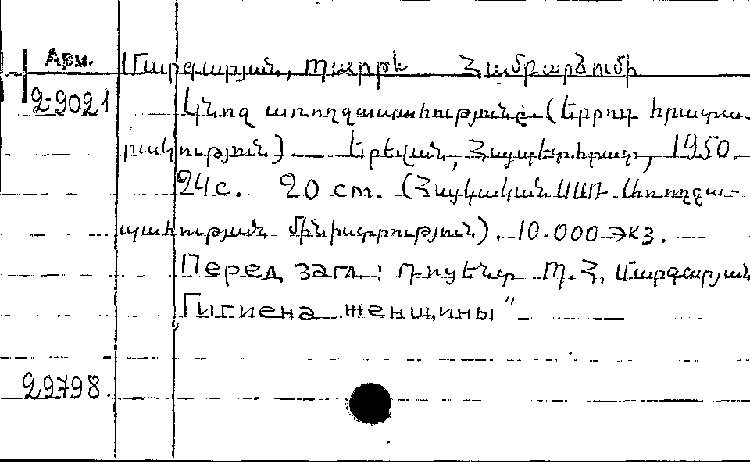 Арм.
2-9021
Մարգարյան, Պարրե Համբարձումի
Կնոջ առողջապահությունը (Երրորդ հրատա-
րակություն) Երևան, Հայպետհրատ, 1950
24с. 20 cm. (Հայկական ՍՍՌ Առողջա-
պահության մինիստրություն). 10.000 экз.
Перед загл.: Դոցենտ Պ.Հ. Մարգարյան
Гигиена женщины"
29798